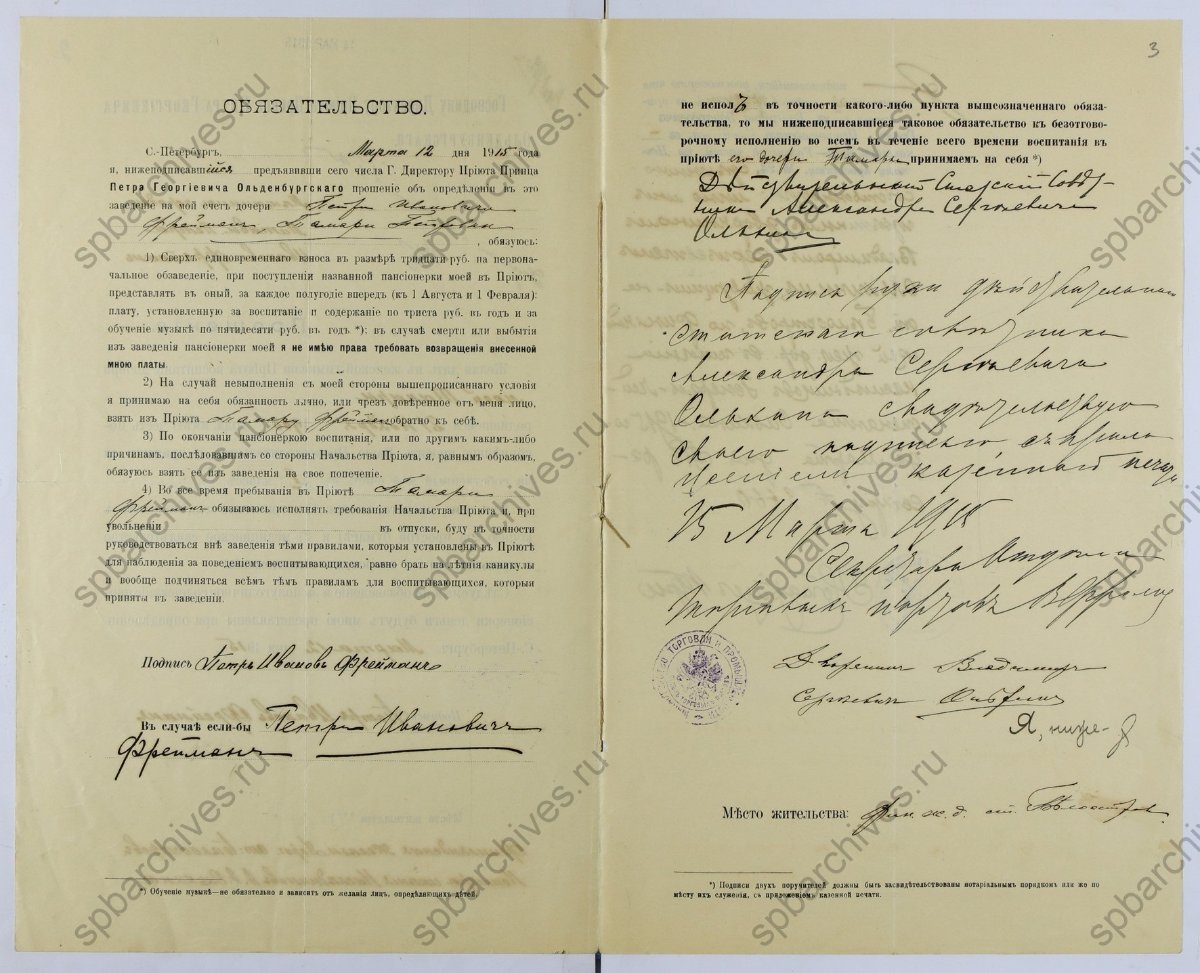 ОБЯЗАТЕЛЬСТВО.
С.-Петербургъ, Марта 12 дня 1915 года
я, нижеподписавшійся предъявивши сего числа Г. Директору Пріюта Принца
Петра Георгіевича Ольденбургскаго прошеніе объ опредѣленіи въ это
заведеніе на мой счетъ дочери Петра Ивановича
Фрейманъ, Тамары Петровны
, обязуюсь:
1) Сверхъ единовременнаго взноса въ размѣрѣ тридцати руб. на первона-
чальное обзаведеніе, при поступленіи названной пансіонерки моей въ Пріютъ,
представлять въ оный, за каждое полугодіе впередъ (къ 1 Августа и 1 Февраля):
плату, установленную за воспитаніе и содержаніе по триста руб. въ годъ и за
обученіе музыкѣ по пятидесяти руб. въ годъ *); въ случаѣ смерти или выбытіи
изъ заведенія пансіонерки моей я не имѣю права требовать возвращенія внесенной
мною платы.
2) На случай невыполненія съ моей стороны вышепрописаннаго условія
я принимаю на себя обязанность лично, или чрезъ довѣренное отъ меня лицо,
взять изъ Пріюта Тамару Фрейманъ обратно къ себѣ.
3) По окончаніи пансіонеркою воспитанія, или по другимъ какимъ-либо
причинамъ, послѣдовавшимъ со стороны Начальства Пріюта, я, равнымъ образомъ,
обязуюсь взять ее изъ заведенія на свое попеченіе.
4) Во все время пребыванія въ Пріютѣ Тамары
Фрейманъ обязываюсь исполнять требованія Начальства Пріюта и, при
увольненіи въ отпуски, буду въ точности
руководствоваться внѣ заведенія тѣми правилами, которыя установлены въ Пріютѣ
для наблюденія за поведеніемъ воспитывающихся, равно брать на лѣтнія каникулы
и вообще подчиняться всѣмъ тѣмъ правиламъ для воспитывающихся, которыя
приняты въ заведеніи.
Подпись Петръ Ивановъ Фрейманъ
Въ случаѣ если-бы Петръ Ивановичъ
Фрейманъ
*) Обученіе музыкѣ—не обязательно и зависитъ отъ желанія лицъ, опредѣляющихъ дѣтей.
3
не исполъ въ точности какого-либо пункта вышеозначеннаго обяза-
тельства, то мы нижеподписавшіеся таковое обязательство къ безотгово-
рочному исполненію во всемъ въ теченіе всего времени воспитанія въ
пріютѣ его дочери Тамары принимаемъ на себя *)
Дѣйствительный Статскій Совѣт-
никъ Александръ Сергѣевичъ
Подпись руки дѣйствительнаго
статскаго совѣтника
Александра Сергѣевича
свидѣтельствую
своею подписью съ прило-
женіемъ казенной печати
15 Марта 1915
Секретарь Отдѣла
торговыхъ портовъ
Дворянинъ Владиміръ
Сергѣевичъ
Я, ниже-
Мѣсто жительства: Фин. ж. д. ст. Бѣлоостров.
*) Подписи двухъ поручителей должны быть засвидѣтельствованы нотаріальнымъ порядкомъ или же по
мѣсту ихъ служенія, съ приложеніемъ казенной печати.
spbarchives.ru